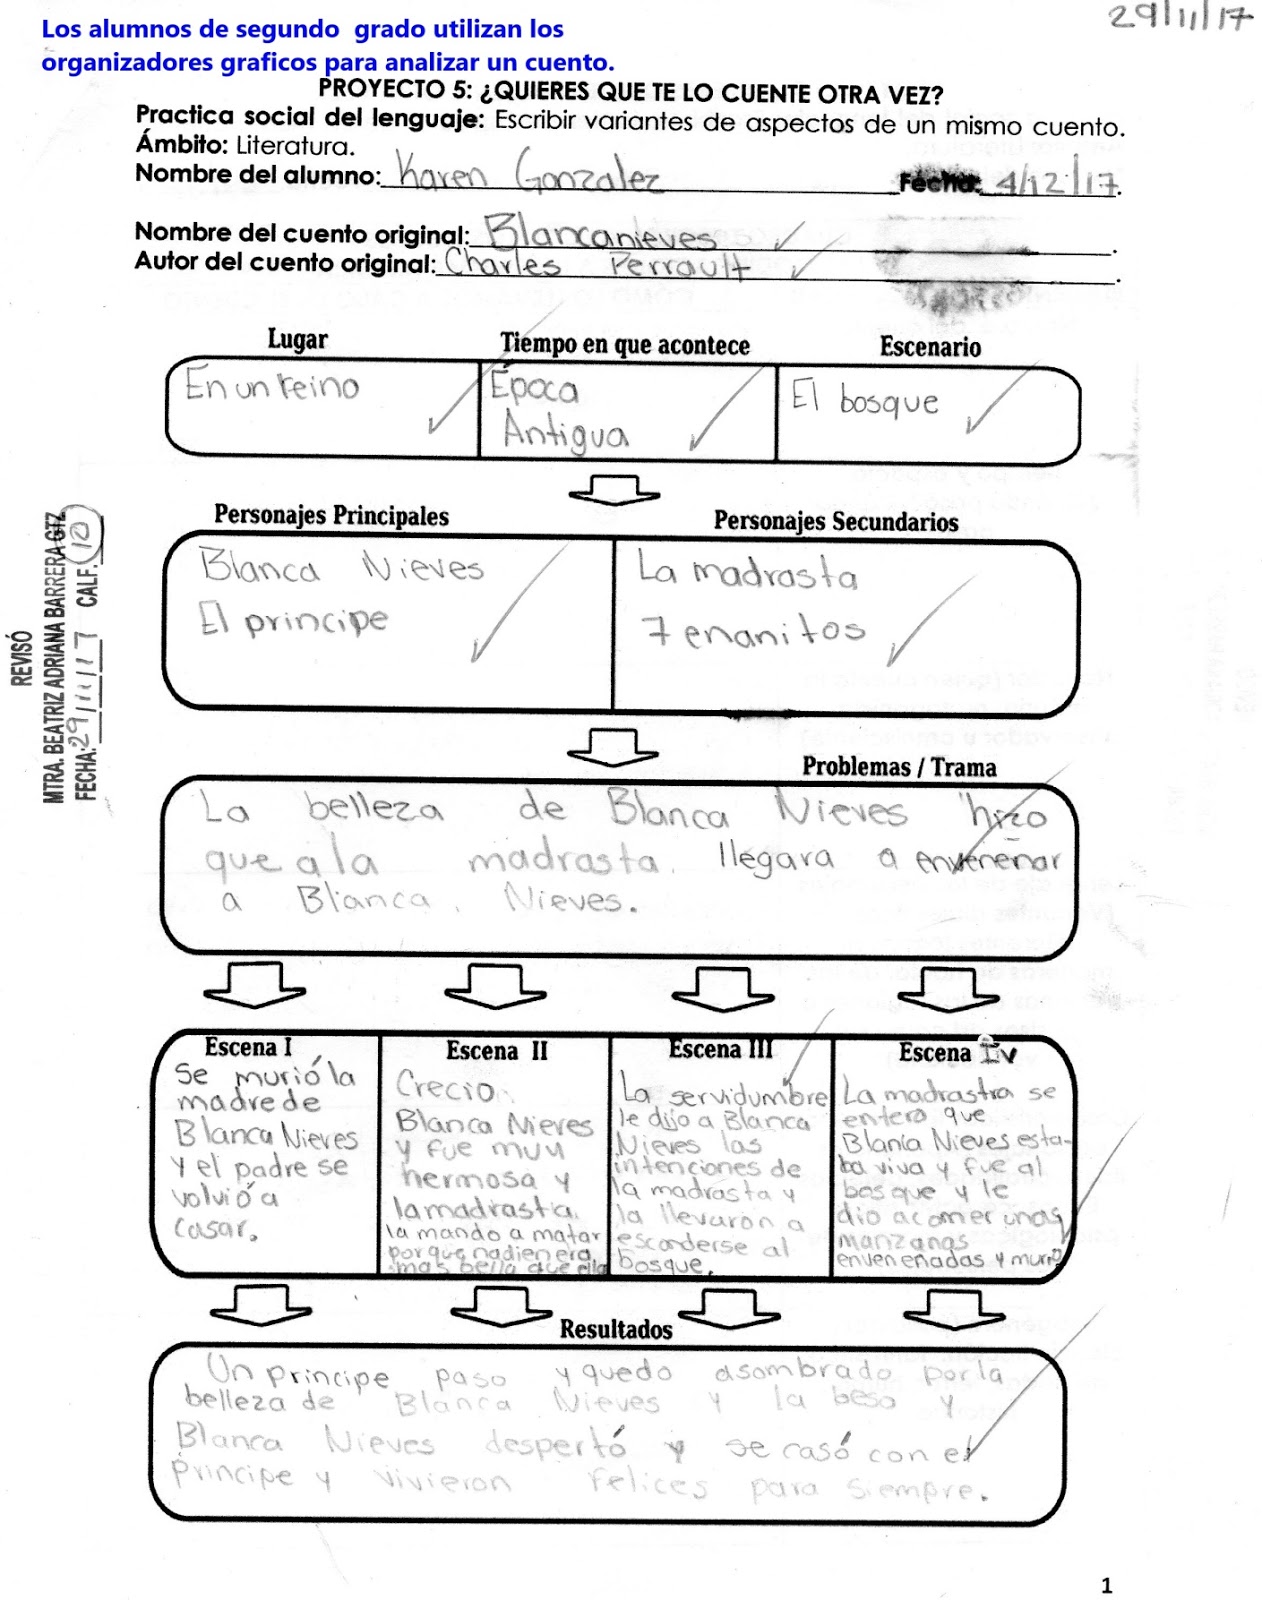 29/11/17
Los alumnos de segundo  grado utilizan los
organizadores graficos para analizar un cuento.
PROYECTO 5: ¿QUIERES QUE TE LO CUENTE OTRA VEZ?
Practica social del lenguaje: Escribir variantes de aspectos de un mismo cuento.
Ámbito: Literatura.
Nombre del alumno: Karen Gonzalez Fecha: 4/12/17.
Nombre del cuento original: Blancanieves.
Autor del cuento original: Charles Perrault.
Lugar Tiempo en que acontece Escenario
En un reino Época El bosque
Antigua
Personajes Principales Personajes Secundarios
Blanca Nieves La madrasta
El principe 7 enanitos
REVISÓ
MTRA. BEATRIZ ADRIANA BARRERA GTZ
FECHA: 29/11/17 CALF. 10
Problemas / Trama
La belleza de Blanca Nieves hizo
que a la madrasta. llegara a envenenar
a Blanca. Nieves.
Escena I
Se murió la
madre de
Blanca Nieves
y el padre se
volvió a
casar.
Escena II
Crecio.
Blanca Nieves
y fue muy
hermosa y
la madrasta.
la mando a matar
porque nadien era
mas bella que ella
Escena III
La servidumbre
le dijo a Blanca
Nieves las
intenciones de
la madrasta y
la llevaron a
esconderse al
bosque.
Escena IV
La madrastra se
entero que
Blania Nieves esta-
ba viva y fue al
bosque y le
dio a comer unas
manzanas
envenenadas y murio
Resultados
Un principe paso y quedo asombrado por la
belleza de Blanca Nieves y la beso y
Blanca Nieves despertó y se casó con el
Principe y vivieron felices para siempre.
1